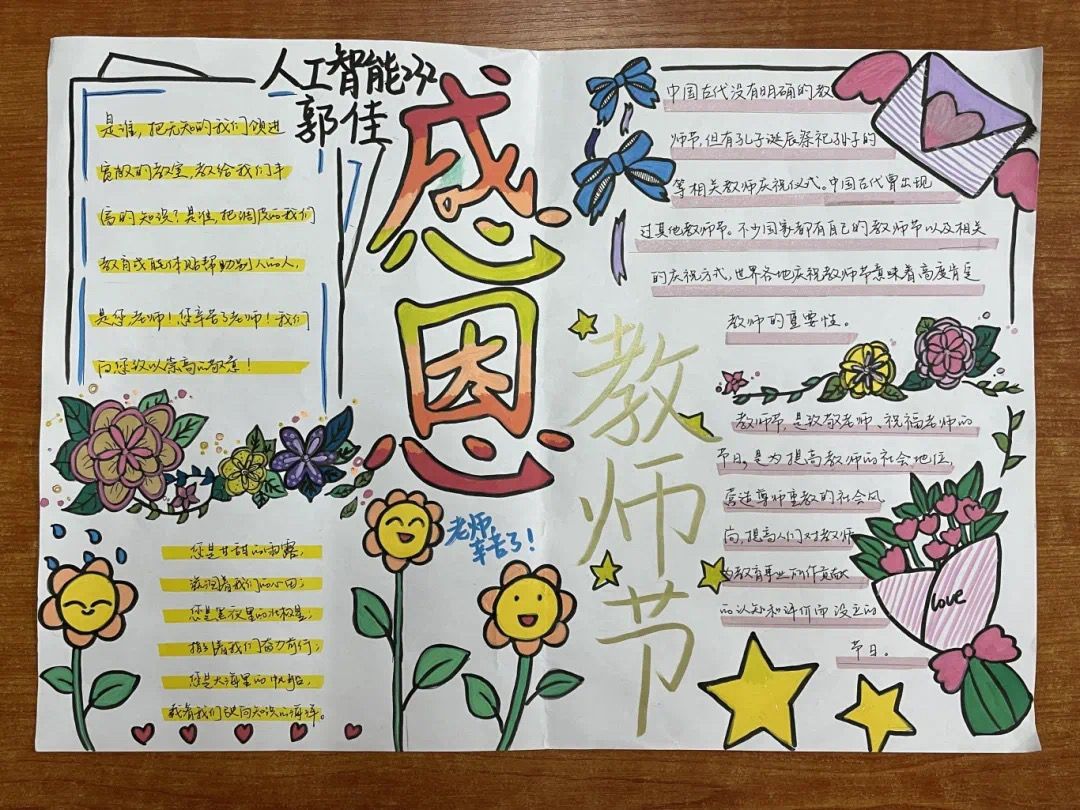 人工智能232
郭佳
感恩
教师节
老师,
辛苦了!
是谁,把无知的我们领进
宽敞的教室,教给我们丰
富的知识?是谁,把调皮的我们
教育成能体贴帮助别人的人,
是您,老师!您辛苦了老师!我们
向您致以崇高的敬意!
您是甘甜的雨露,
滋润着我们的心田;
您是黑夜里的北极星,
指引着我们奋力前行;
您是大海里的帆船,
载着我们驶向知识的海洋。
中国古代没有明确的教
师节,但有孔子诞辰祭祀孔子的
等相关教师庆祝仪式。中国古代曾出现
过其他教师节。不少国家都有自己的教师节以及相关
的庆祝方式,世界各地庆祝教师节意味着高度肯定
教师的重要性。
教师节,是致敬老师、祝福老师的
节日,是为提高教师的社会地位,
营造尊师重教的社会风
向,提高人们对教师
为教育事业所作贡献
的认知和评价而设立的
节日。
love